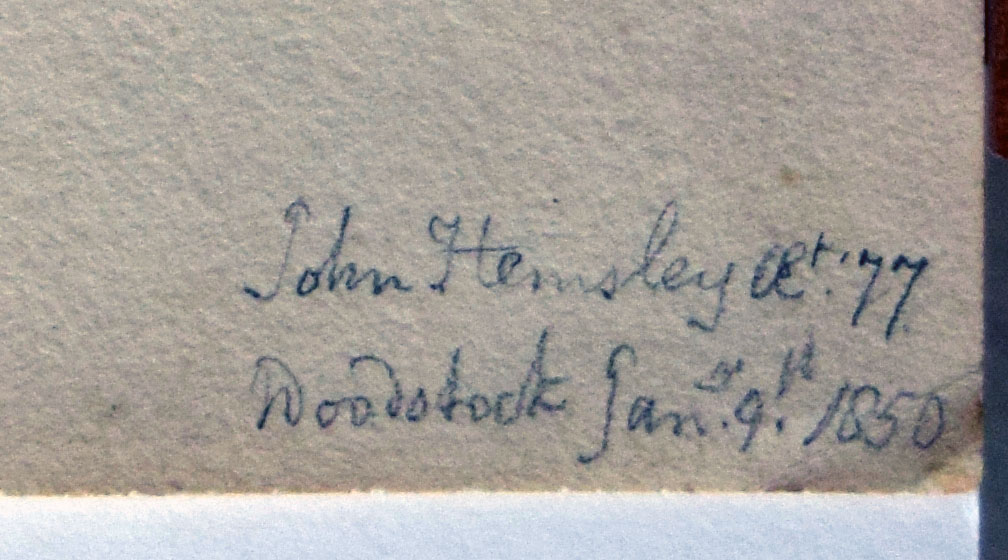 John Hemsley Æt. 77
Woodstock Jany. 9th 1850